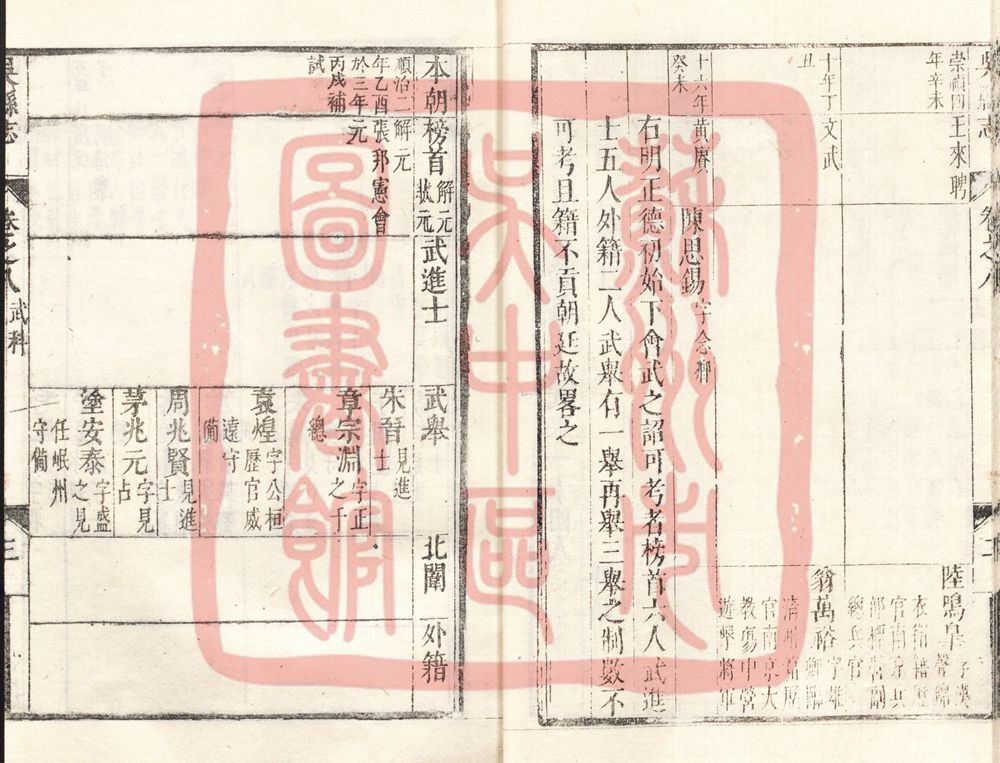 吳縣志
卷之八
二
崇禎四
年辛未
王來聘
陸鳴臯
總兵官
十年丁
丑
文武
翁萬裕字雄
官南京大
教場中營
遊擊將軍
十六年
癸未
黃賡
陳思錫字念
右明正德初始下會武之詔可考者榜首六人武進
士五人外籍二人武舉有一舉再舉三舉之制數不
可考且籍不貢朝廷故畧之
本朝榜首解元
狀元
武進士
武舉
北闈
外籍
順治二
年乙酉
於三年
丙戌補
試
解元
張邦憲會
元
朱晉見進
士
章宗淵字正
之千
總
袁煌字公桓
歷官威
遠守
備
周兆賢見進
士
茅兆元字見
占
塗安泰字盛
之見
任岷州
守備
吳縣志
卷之八
武科
三
蘇州市
吳中區
圖書館